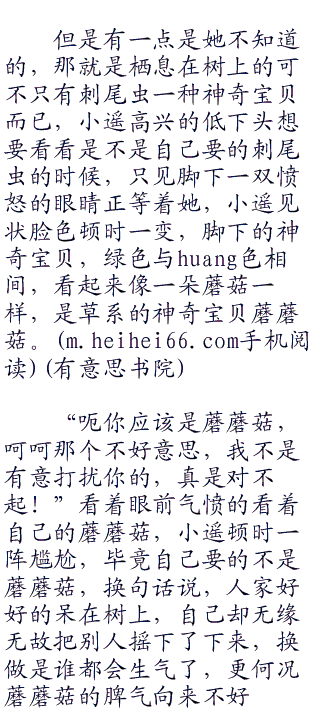 但是有一点是她不知道
的，那就是栖息在树上的可
不只有刺尾虫一种神奇宝贝
而已，小遥高兴的低下头想
要看看是不是自己要的刺尾
虫的时候，只见脚下一双愤
怒的眼睛正等着她，小遥见
状脸色顿时一变，脚下的神
奇宝贝，绿色与huang色相
间，看起来像一朵蘑菇一
样，是草系的神奇宝贝蘑蘑
菇。(m.heihei66.com手机阅
读)(有意思书院)
“呃你应该是蘑蘑菇，
呵呵那个不好意思，我不是
有意打扰你的，真是对不
起！”看着眼前气愤的看着
自己的蘑蘑菇，小遥顿时一
阵尴尬，毕竟自己要的不是
蘑蘑菇，换句话说，人家好
好的呆在树上，自己却无缘
无故把别人摇下了下来，换
做是谁都会生气了，更何况
蘑蘑菇的脾气向来不好